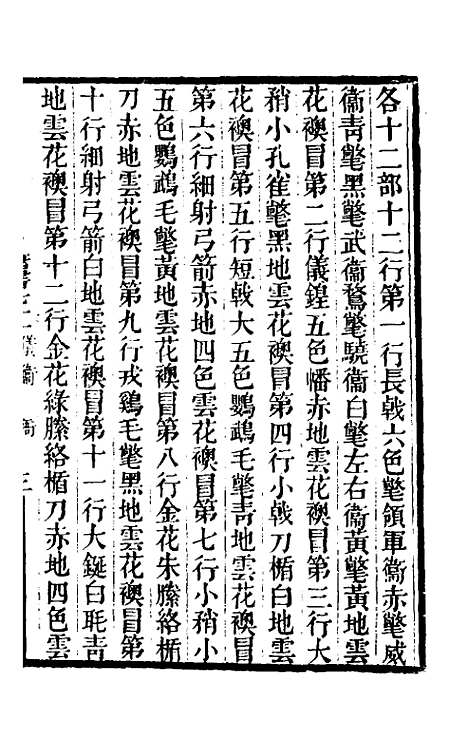 各十二部十二行第一行長戟六色氅領軍衞赤氅威
衞靑氅黑氅武衞鶩氅驍衞白氅左右衞黃氅黃地雲
花襖冒第二行儀鍠五色幡赤地雲花襖冒第三行大
矟小孔雀氅黑地雲花襖冒第四行小戟刀楯白地雲
花襖冒第五行短戟大五色鸚鵡毛氅靑地雲花襖冒
第六行細射弓箭赤地四色雲花襖冒第七行小矟小
五色鸚鵡毛氅黃地雲花襖冒第八行金花朱縢絡楯
刀赤地雲花襖冒第九行戎鷄毛氅黑地雲花襖冒第
十行細射弓箭白地雲花襖冒第十一行大鋋白毦靑
地雲花襖冒第十二行金花綠縢絡楯刀赤地四色雲
三